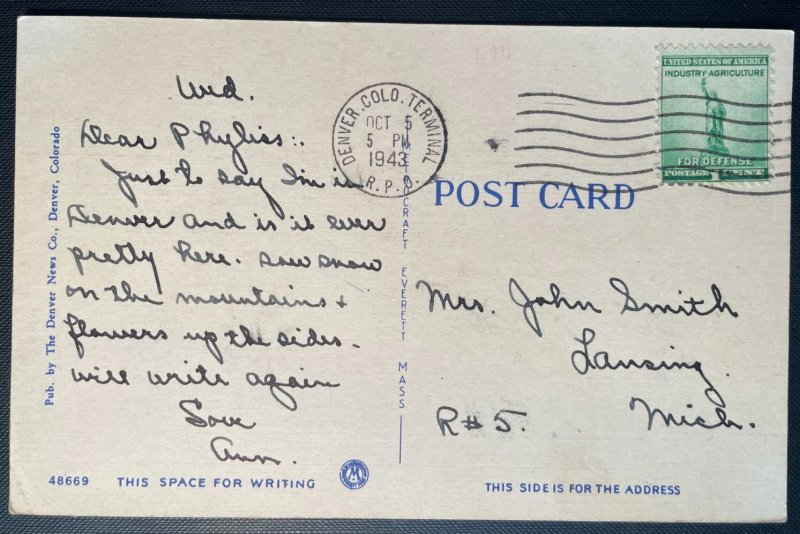 Wed.
Dear Phyliss:.
Just to say I'm in
Denver and is it ever
pretty here. saw snow
on the mountains +
flowers up the sides.
will write again
Love
Ann.
48669
THIS SPACE FOR WRITING
Pub. by The Denver News Co., Denver, Colorado
METROCRAFT EVERETT MASS
DENVER.COLO.TERMINAL
OCT 5
5 PM
1943
R.P.O.
UNITED STATES OF AMERICA
INDUSTRY·AGRICULTURE
FOR DEFENSE
POSTAGE
POST CARD
Mrs. John Smith
Lansing.
R#5. Mich.
THIS SIDE IS FOR THE ADDRESS